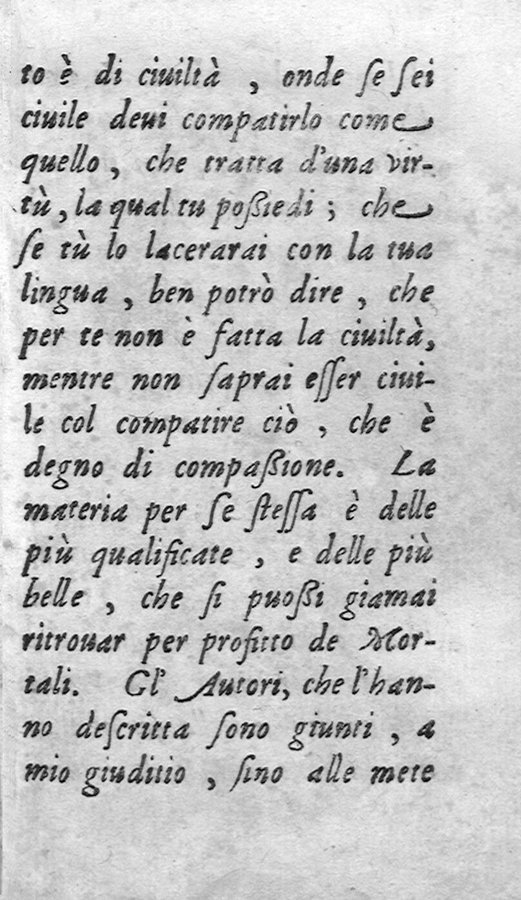 to è di ciuiltà , onde ſe ſei
ciuile deui compatirlo come
quello , che tratta d'una vir-
tù , la qual tu poßiedi ; che
ſe tù lo lacerarai con la tua
lingua , ben potrò dire , che
per te non è fatta la ciuiltà,
mentre non ſaprai eſſer ciui-
le col compatire ciò , che è
degno di compaßione. La
materia per ſe ſteſſa è delle
più qualificate , e delle più
belle , che ſi puoßi giamai
ritrouar per profitto de Mor-
tali. Gl' Autori, che l'han-
no deſcritta ſono giunti , a
mio giuditio , ſino alle mete